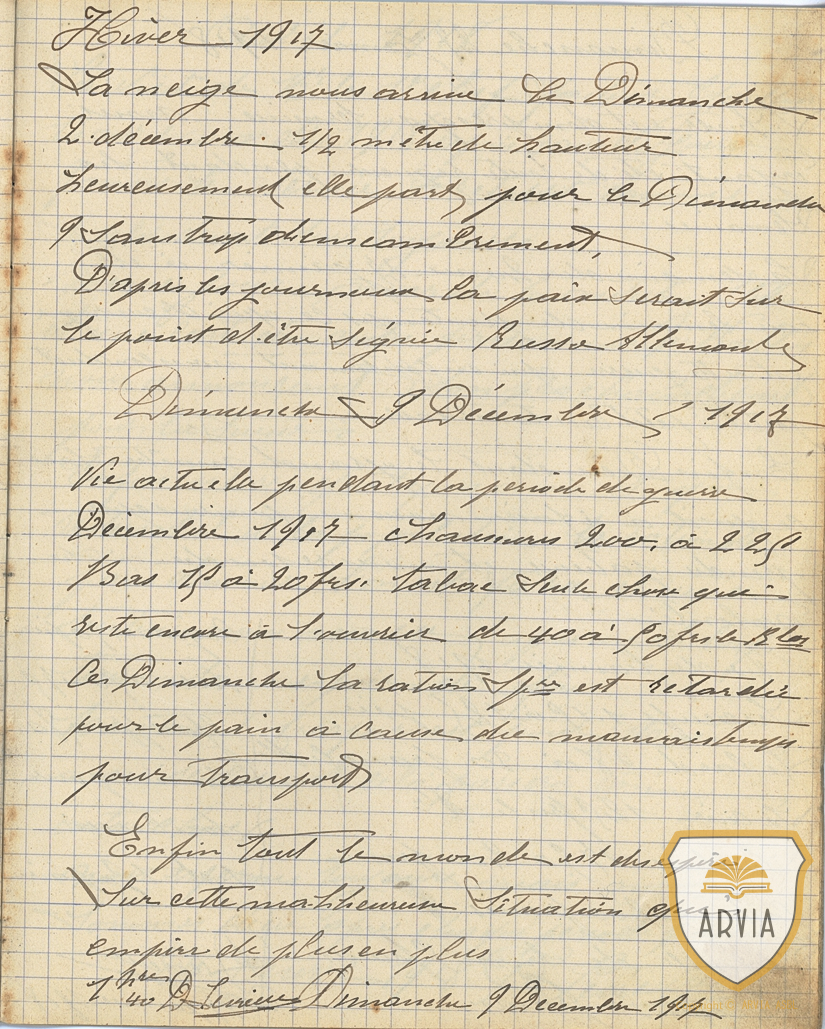 Hiver 1917
La neige nous arrive le Dimanche
2 décembre. 1/2 mètre de hauteur
heureusement elle part pour le Dimanche
9 sans trop d'encombrement,
D'après les journeaux la paix serait sur
le point d'être signée Russo Allemande
Dimanche 9 Décembre 1917
Vie actuelle pendant la periode de guerre
Décembre 1917 chaussures 200. à 225
Bas 15 à 20 frs. tabac seule chose qui
reste encore à l'ouvrier de 40 à 50 frs le Klos
Ce Dimanche la ration Spre est retardée
pour le pain à cause du mauvais temps
pour transport
Enfin tout le monde est
Sur cette malheureuse situation qui
empire de plus en plus
1 hres 40 Dimanche 9 Decembre 1917
ARVIA